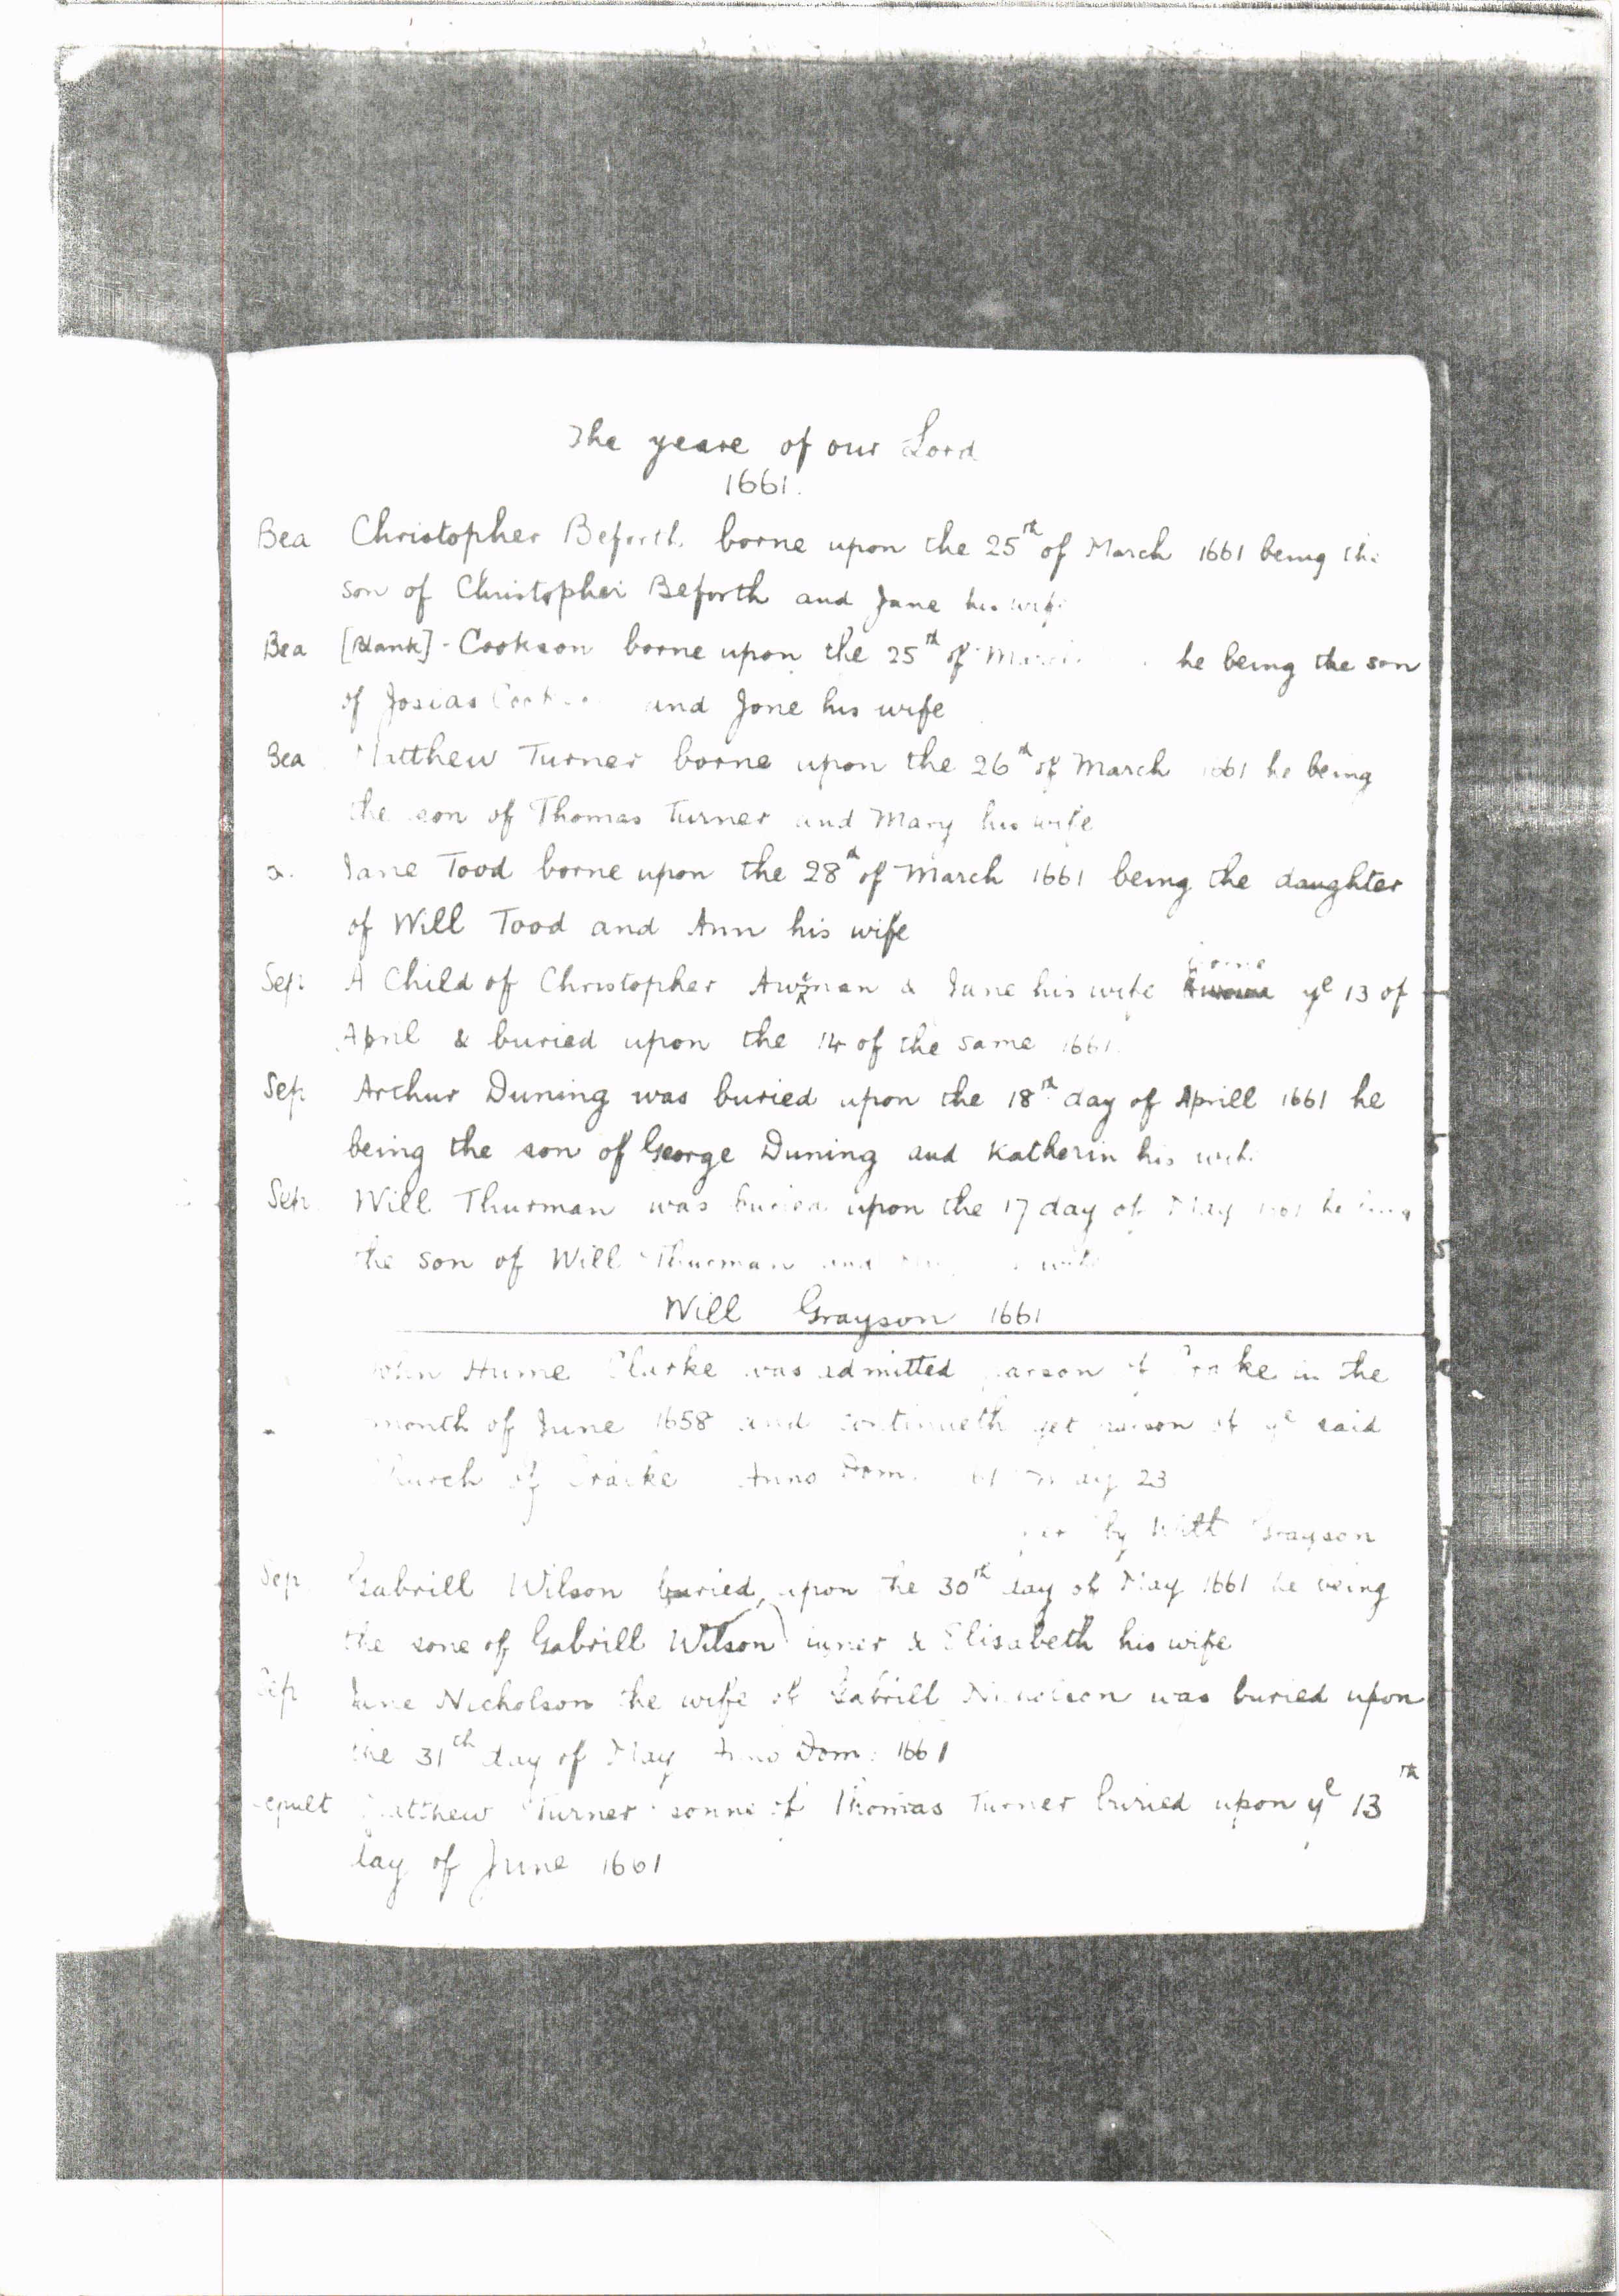 The yeare of our Lord
1661.
Bea Christopher Beforth borne upon the 25th of March 1661 being the
son of Christopher Beforth and Jane his wife
Bea [Blank] - Cookson borne upon the 25th of March he being the son
of Josias and Jone his wife
Bea Matthew Turner borne upon the 26th of March 1661 he being
the son of Thomas Turner and Mary his wife
Jane Tood borne upon the 28th of March 1661 being the daughter
of Will Tood and Ann his wife
Sep: A Child of Christopher & Jane his wife borne ye 13 of
April & buried upon the 14 of the same 1661.
Sep. Arthur Duning was buried upon the 18th day of Aprill 1661 he
being the son of George Duning and Katherin his wife
Sep. Will Thurman was buried upon the 17 day of May 1661 he being
the son of Will Thurman and wife
Will Grayson 1661
John Hume Clarke was admitted parson of Crake in the
month of June 1658 and continueth yet parson of ye said
Church of Craike Anno Dom. 61 May 23
by Will Grayson
Sep. Gabrill Wilson buried upon the 30th day of May 1661 he being
the sone of Gabrill Wilson & Elisabeth his wife
Sep Jane Nicholson the wife of Gabrill Nicholson was buried upon
the 31th day of May Anno Dom: 1661
Sepult Matthew Turner sonne of Thomas Turner buried upon ye 13th
day of June 1661